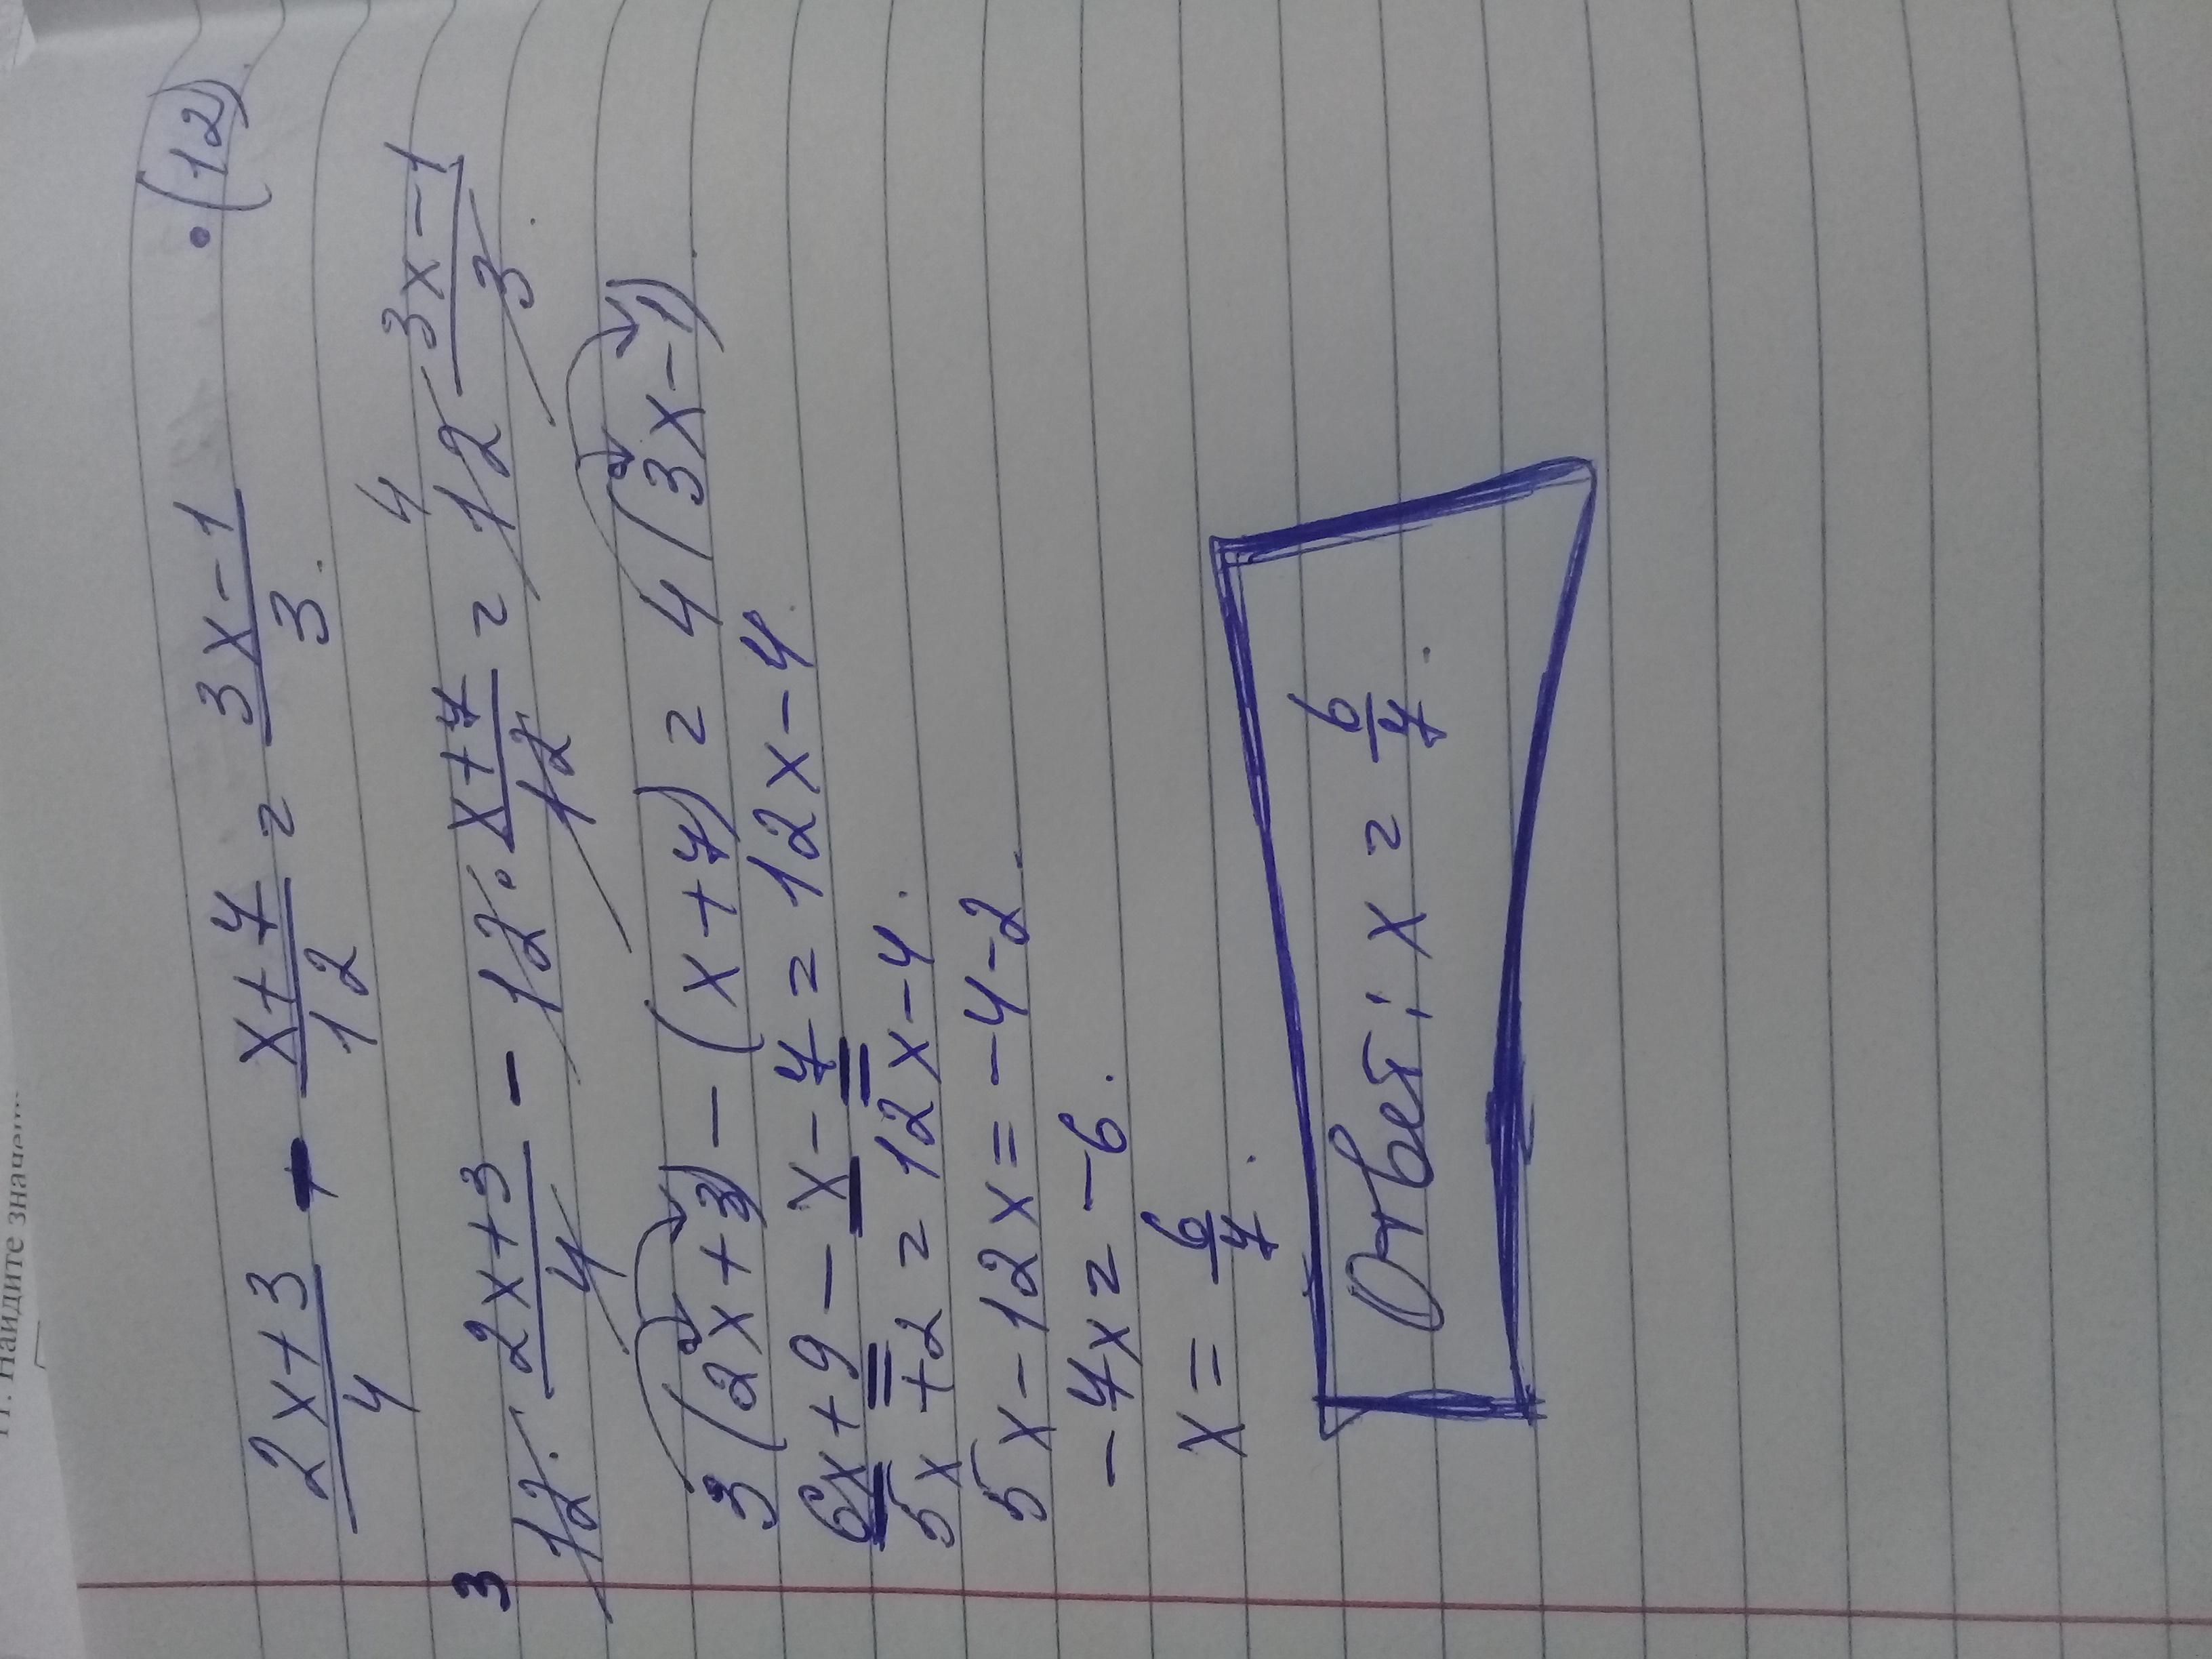 11. Найдите значен
(2x+3)/4 - (x+7)/12 = (3x-1)/3. •(12).
3 12·(2x+3)/4 - 12·(x+7)/12 = 12 4 (3x-1)/3.
3(2x+3) - (x+7) = 4(3x-1).
6x+9 - x-7 = 12x-4.
5x+2 = 12x-4.
5x-12x = -4-2.
-7x = -6.
x = 6/7.
Ответ: x = 6/7.